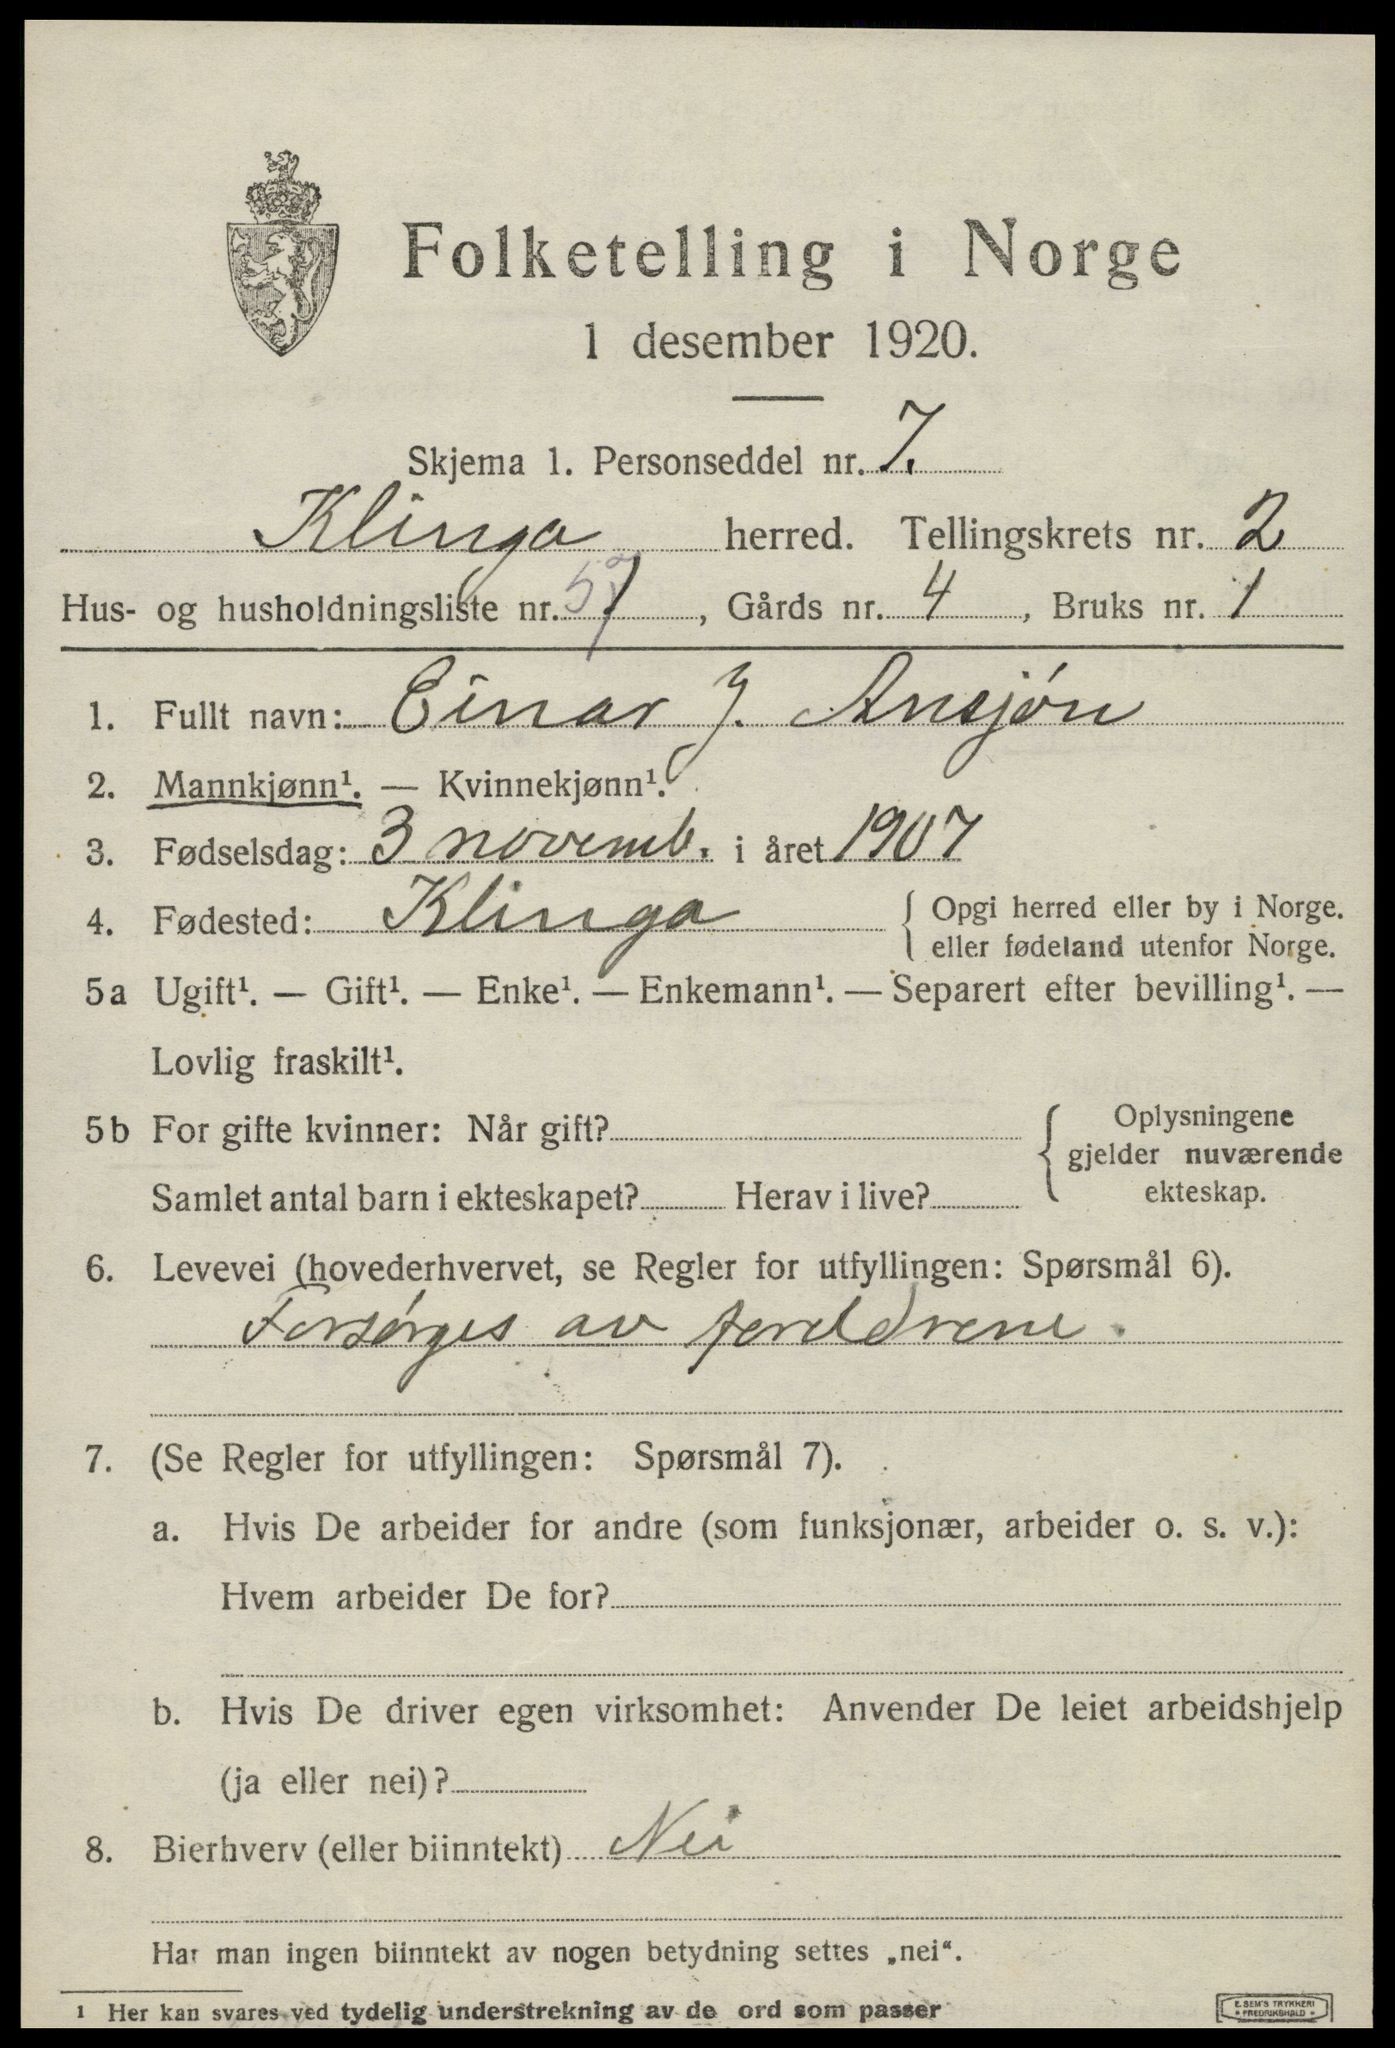 Folketelling i Norge
1 desember 1920.
Skjema 1. Personseddel nr. 7.
Klinga herred. Tellingskrets nr. 2
Hus- og husholdningsliste nr. 57, Gårds nr. 4, Bruks nr. 1
1. Fullt navn: Einar J. Ansjøn
2. Mannkjønn¹. — Kvinnekjønn¹.
3. Fødselsdag: 3 novemb. i året 1907
4. Fødested: Klinga { Opgi herred eller by i Norge.
eller fødeland utenfor Norge.
5a Ugift¹. — Gift¹. — Enke¹. — Enkemann¹. — Separert efter bevilling¹. —
Lovlig fraskilt¹.
5b For gifte kvinner: Når gift? { Oplysningene
gjelder nuværende
Samlet antal barn i ekteskapet? Herav i live? ekteskap.
6. Levevei (hovederhvervet, se Regler for utfyllingen: Spørsmål 6).
Forsørges av foreldrene.
7. (Se Regler for utfyllingen: Spørsmål 7).
a. Hvis De arbeider for andre (som funksjonær, arbeider o. s. v.):
Hvem arbeider De for?
b. Hvis De driver egen virksomhet: Anvender De leiet arbeidshjelp
(ja eller nei)?
8. Bierhverv (eller biinntekt) Nei
Har man ingen biinntekt av nogen betydning settes „nei“.
1 Her kan svares ved tydelig understrekning av de ord som passer
E. SEM'S TRYKKERI
FREDRIKSHALD